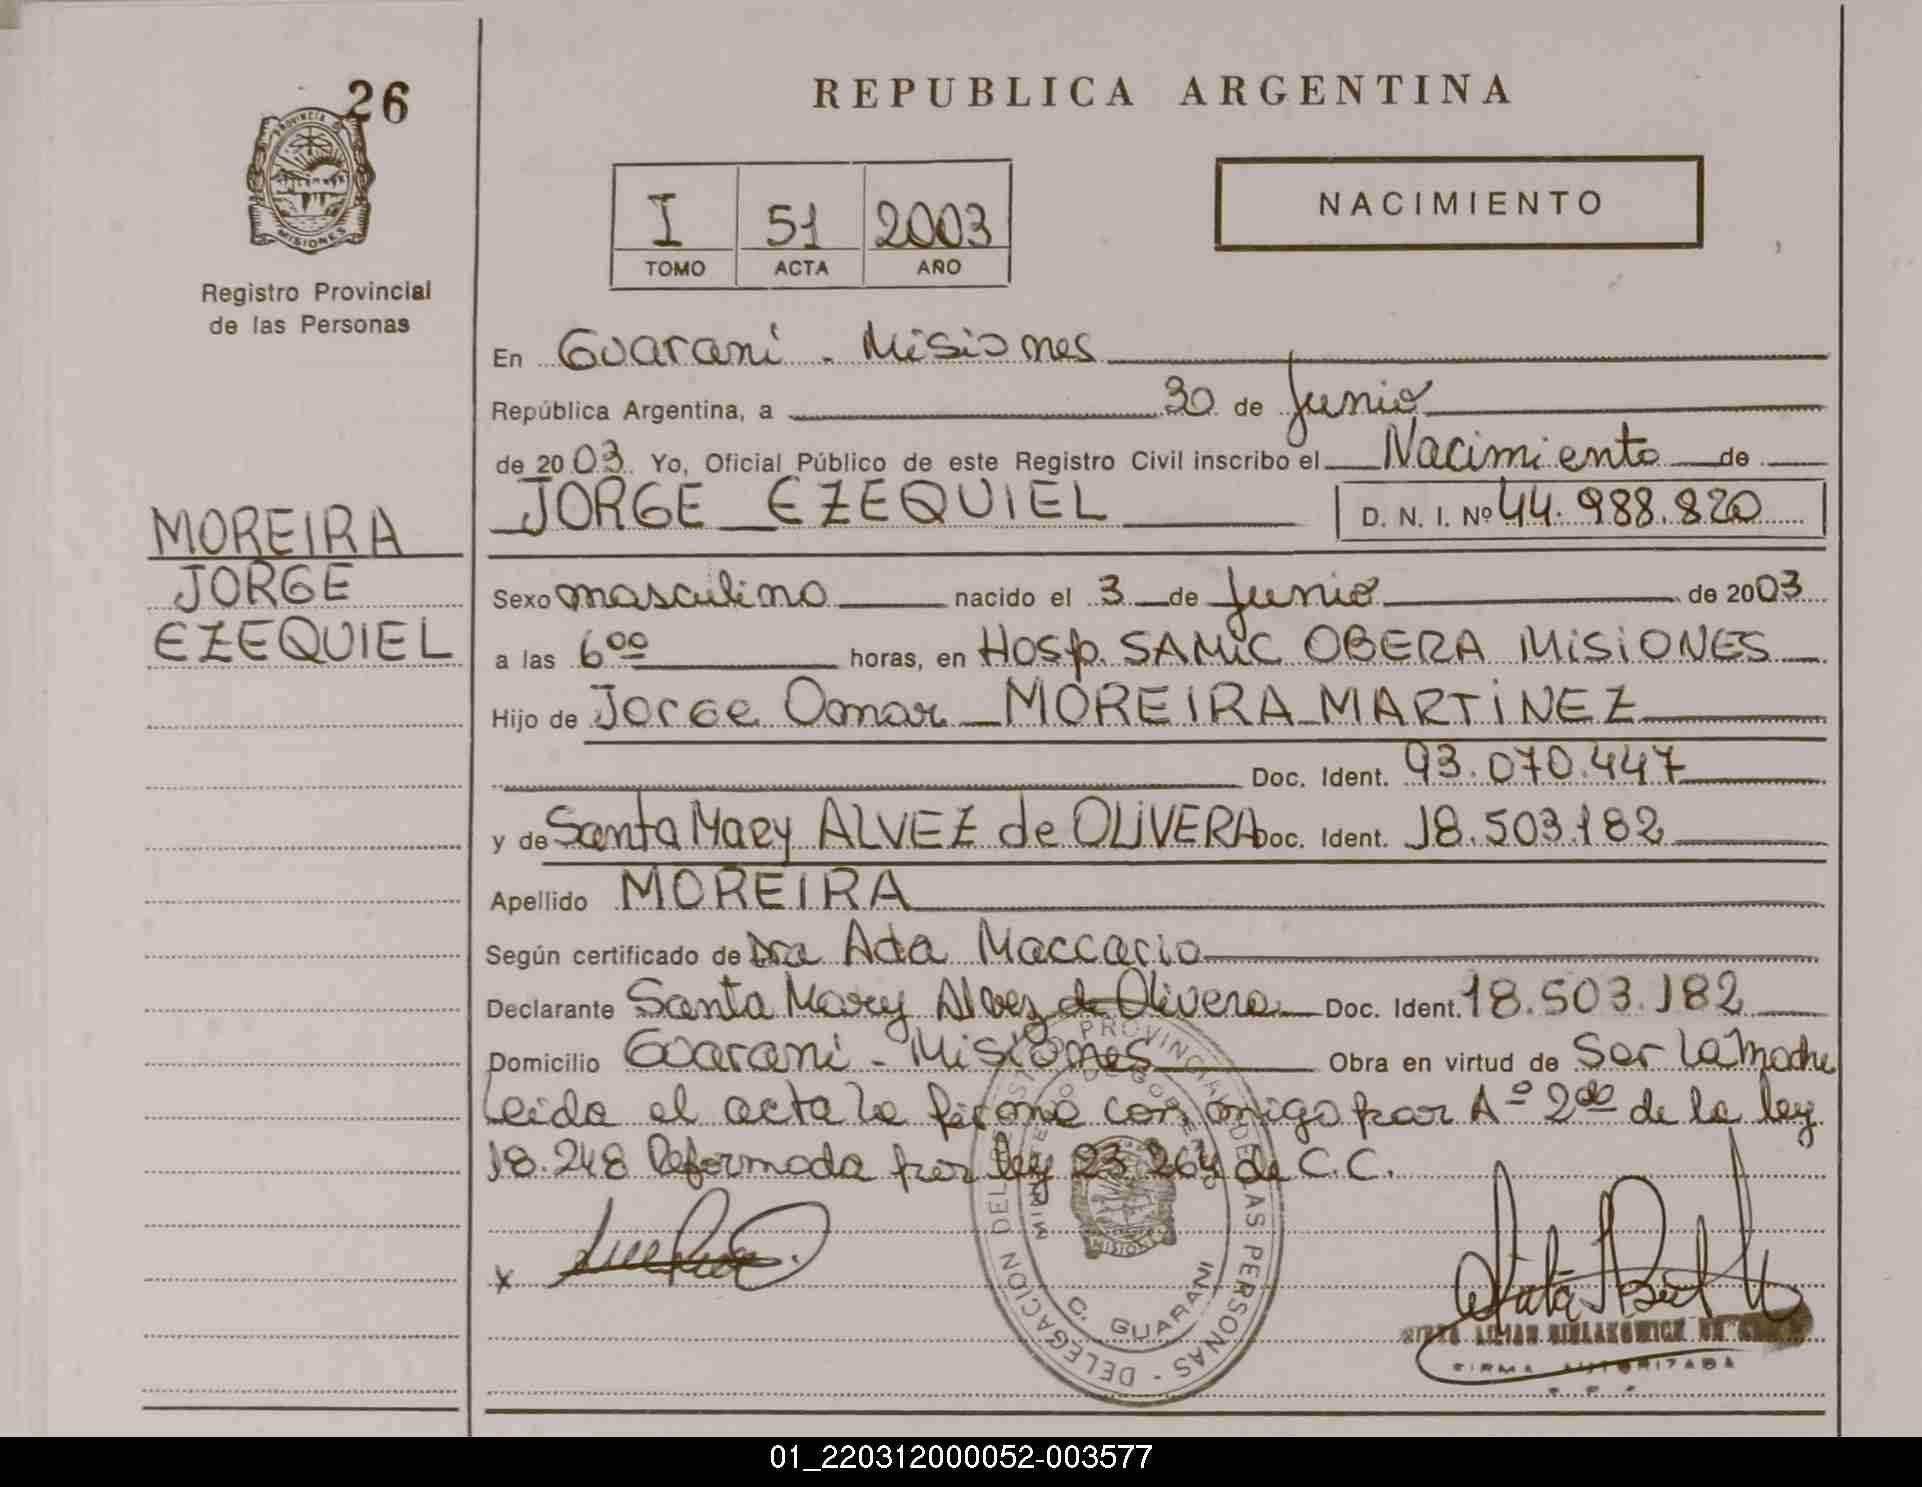 26
PROVINCIA DE
MISIONES
Registro Provincial
de las Personas
MOREIRA
JORGE
EZEQUIEL
REPUBLICA ARGENTINA
I 51 2003
TOMO ACTA AÑO
NACIMIENTO
En Guarani - Misiones
República Argentina, a 30 de Junio
de 2003 Yo, Oficial Público de este Registro Civil inscribo el Nacimiento de
JORGE EZEQUIEL D. N. I. Nº 44.988.820
Sexo masculino nacido el 3 de Junio de 2003
a las 6 00 horas, en Hosp. SAMIC OBERA MISIONES
Hijo de Jorge Omar MOREIRA MARTINEZ
Doc. Ident. 93.070.447
y de Santa Mary ALVEZ de OLIVERA Doc. Ident. 18.503.182
Apellido MOREIRA
Según certificado de Dra Ada Maccario
Declarante Santa Mary Alvez de Olivera Doc. Ident. 18.503.182
Domicilio Guarani - Misiones Obra en virtud de Ser la Madre
Leida el acta la firma conmigo por Aº 2do de la ley
18.248 Reformada por ley 23.264 de C.C.
x
PROVINCIAL DE LAS PERSONAS - DELEGACION
MINISTERIO DE GOBIERNO
MISIONES
C. GUARANI
FIRMA AUTORIZADA
01_220312000052-003577